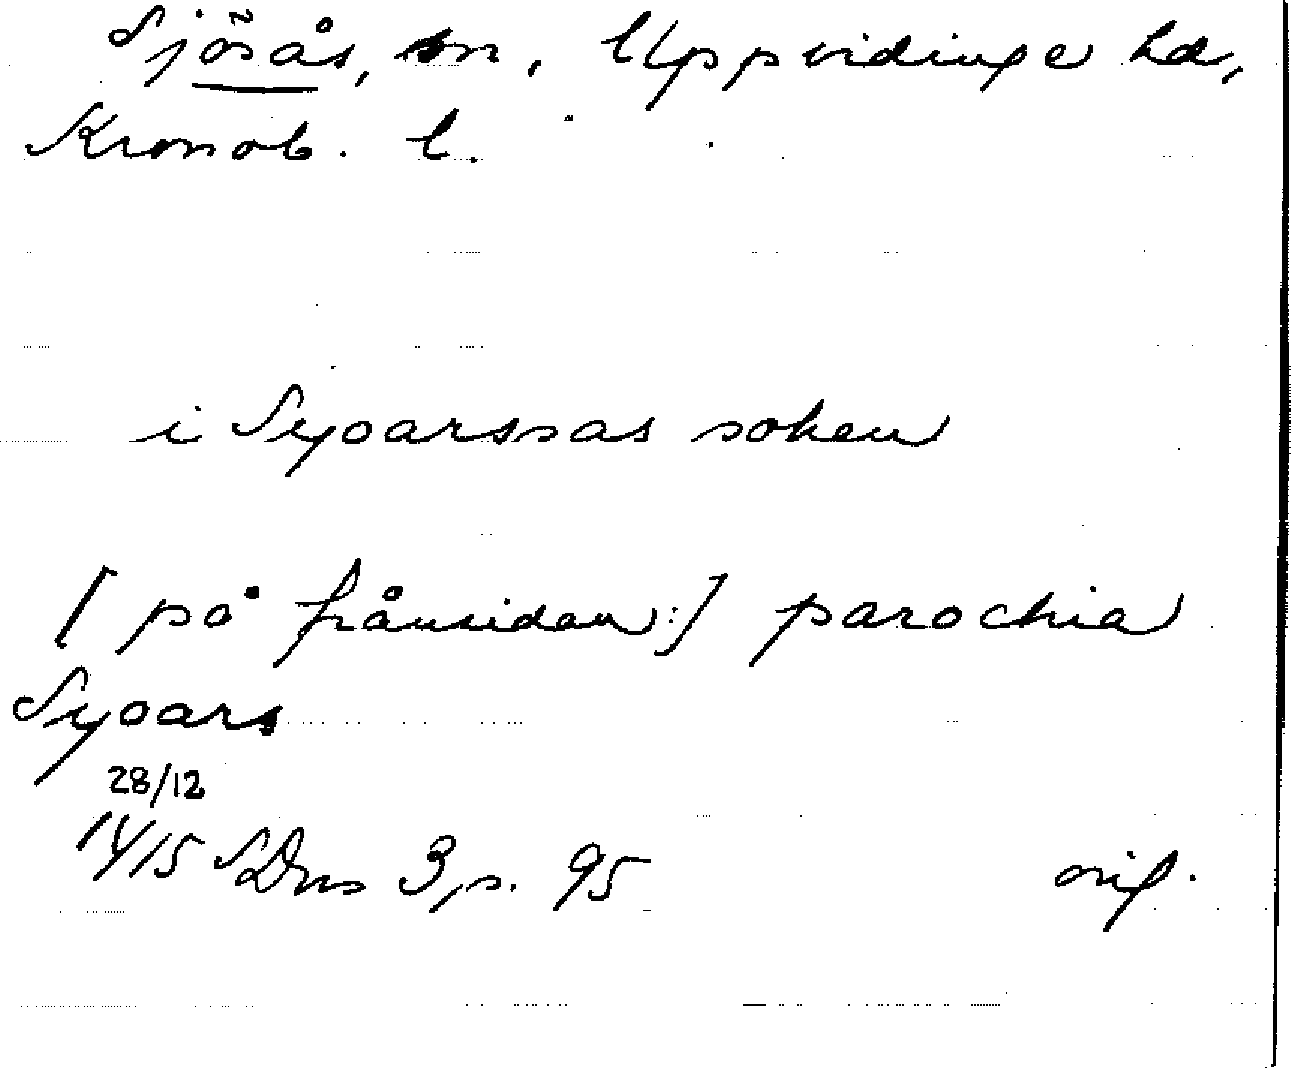 Sjösås, sn, Uppvidinge hd,
Kronob. l.
i Syoarssas soken
[på frånsidan:] parochia
Syoars
28/12
1415 SDns 3, s. 95 orig.